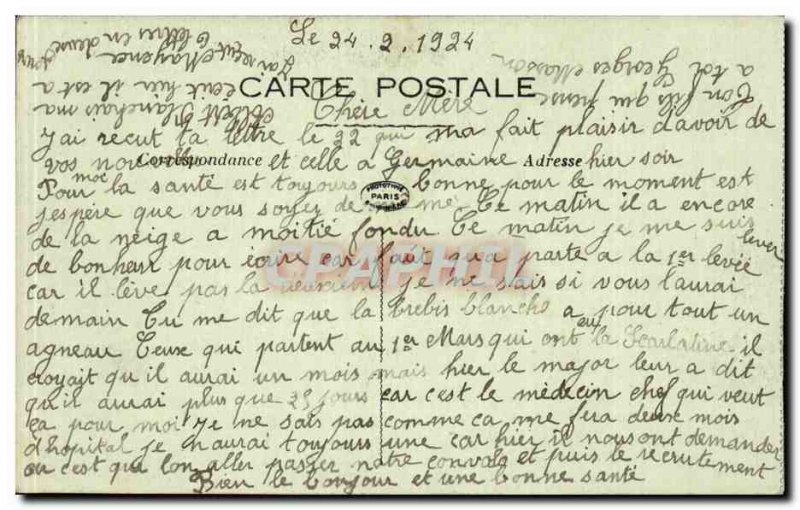 Le 24.2.1924
CARTE POSTALE
Chère Mère
J'ai recut ta lettre le 22 qui ma fait plaisir d'avoir de
vos nouvelle et celle a Germaine hier soir
Correspondance Adresse
Pour moi la santé est toujours bonne pour le moment est
PARIS
j'espère que vous soyez de me. Ce matin il a encore
de la neige a moitié fondu Ce matin je me suis lever
de bonheur pour écrire car faut qu'a parte a la 1er levée
car il lève pas la je ne sais si vous l'aurai
CPAPHIL
demain Tu me dit que la brebis blanche a eu pour tout un
agneau Ceuse qui partent au 1er Mars qui ont la Scarlatine il
croyait qu'il aurai un mois mais hier le major leur a dit
qu'il aurai plus que 25 jours car c'est le médecin chef qui veut
ça pour moi je ne sais pas comme ca me fera deuse mois
d'hopital je n'aurai toujours une car hier il nous ont demander
ou c'est qu'a lon aller passer notre convalo et puis le recrutement
Bien le bonjour et une bonne santé
Ton fils qui pense
a toi Georges Masson
J'ai recut Mayence
6 lettres en deuse jour
écrit hier il est a
Albert Blanchais ma